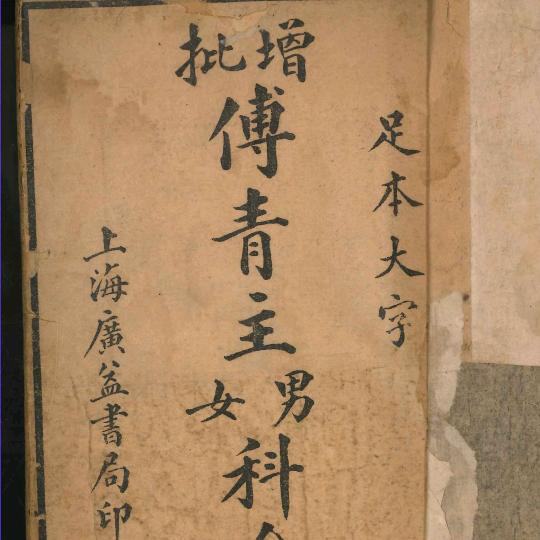 足本大字
增批傅青主男女科
上海廣益書局印